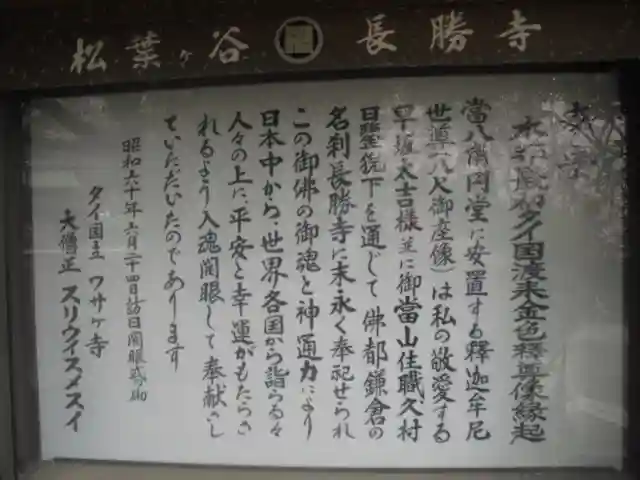 松葉ヶ谷 長勝寺
タイ国渡来金色釋尊像縁起
當八角円堂に安置する釋迦牟尼
世尊(八尺御座像)は私の敬愛する
早坂太吉様並に御當山住職久村
日鑒猊下を通じて佛都鎌倉の
名刹長勝寺に末永く奉祀せられ
この御佛の御魂と神通力により
日本中から、世界各国から詣らる々
人々の上に、平安と幸運がもたらさ
れるよう入魂開眼して奉献さし
ていただいたのであります
昭和六十年六月二十四日訪日開眼
タイ国立 ワサケ寺
大僧正 スリウイスメスイ